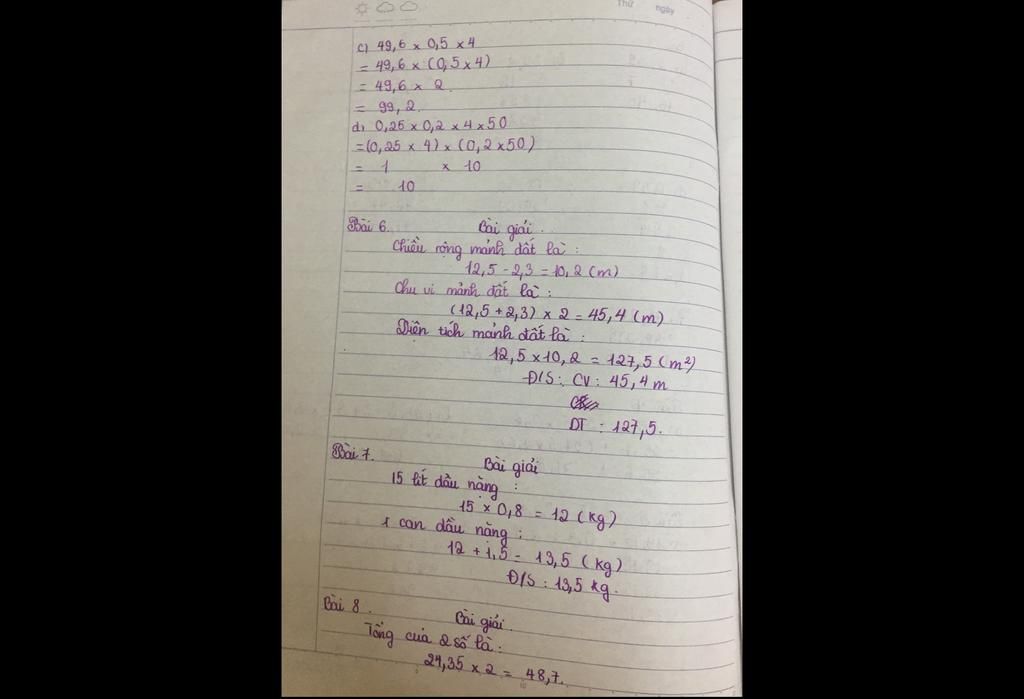 Thứ ngày
c) 49,6 × 0,5 × 4
= 49,6 × (0,5 × 4)
= 49,6 × 2
= 99,2
d) 0,25 × 0,2 × 4 × 50
= (0,25 × 4) × (0,2 × 50)
= 1 × 10
= 10
Bài 6. Bài giải.
Chiều rộng mảnh đất là :
12,5 - 2,3 = 10,2 (m)
Chu vi mảnh đất là :
(12,5 + 2,3) × 2 = 45,4 (m)
Diện tích mảnh đất là :
12,5 × 10,2 = 127,5 (m²)
Đ/S : CV : 45,4 m
DT : 127,5.
Bài 7. Bài giải
15 lít dầu nặng :
15 × 0,8 = 12 (kg)
1 can dầu nặng :
12 + 1,5 = 13,5 (kg)
Đ/S : 13,5 kg.
Bài 8. Bài giải.
Tổng của 2 số là :
24,35 × 2 = 48,7.